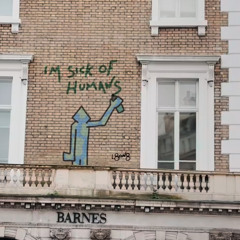 I'M SICK OF
HUMANS
BARNES